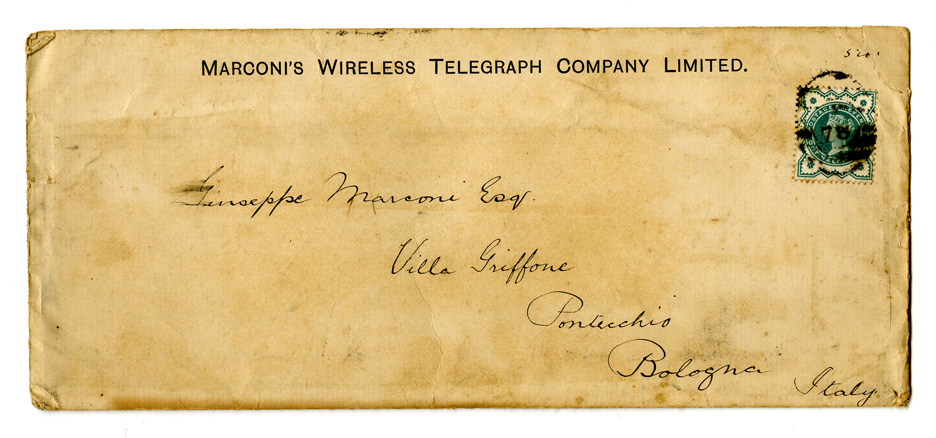 MARCONI'S WIRELESS TELEGRAPH COMPANY LIMITED.
78
Giuseppe Marconi Esq.
Villa Griffone
Pontecchio
Bologna
Italy